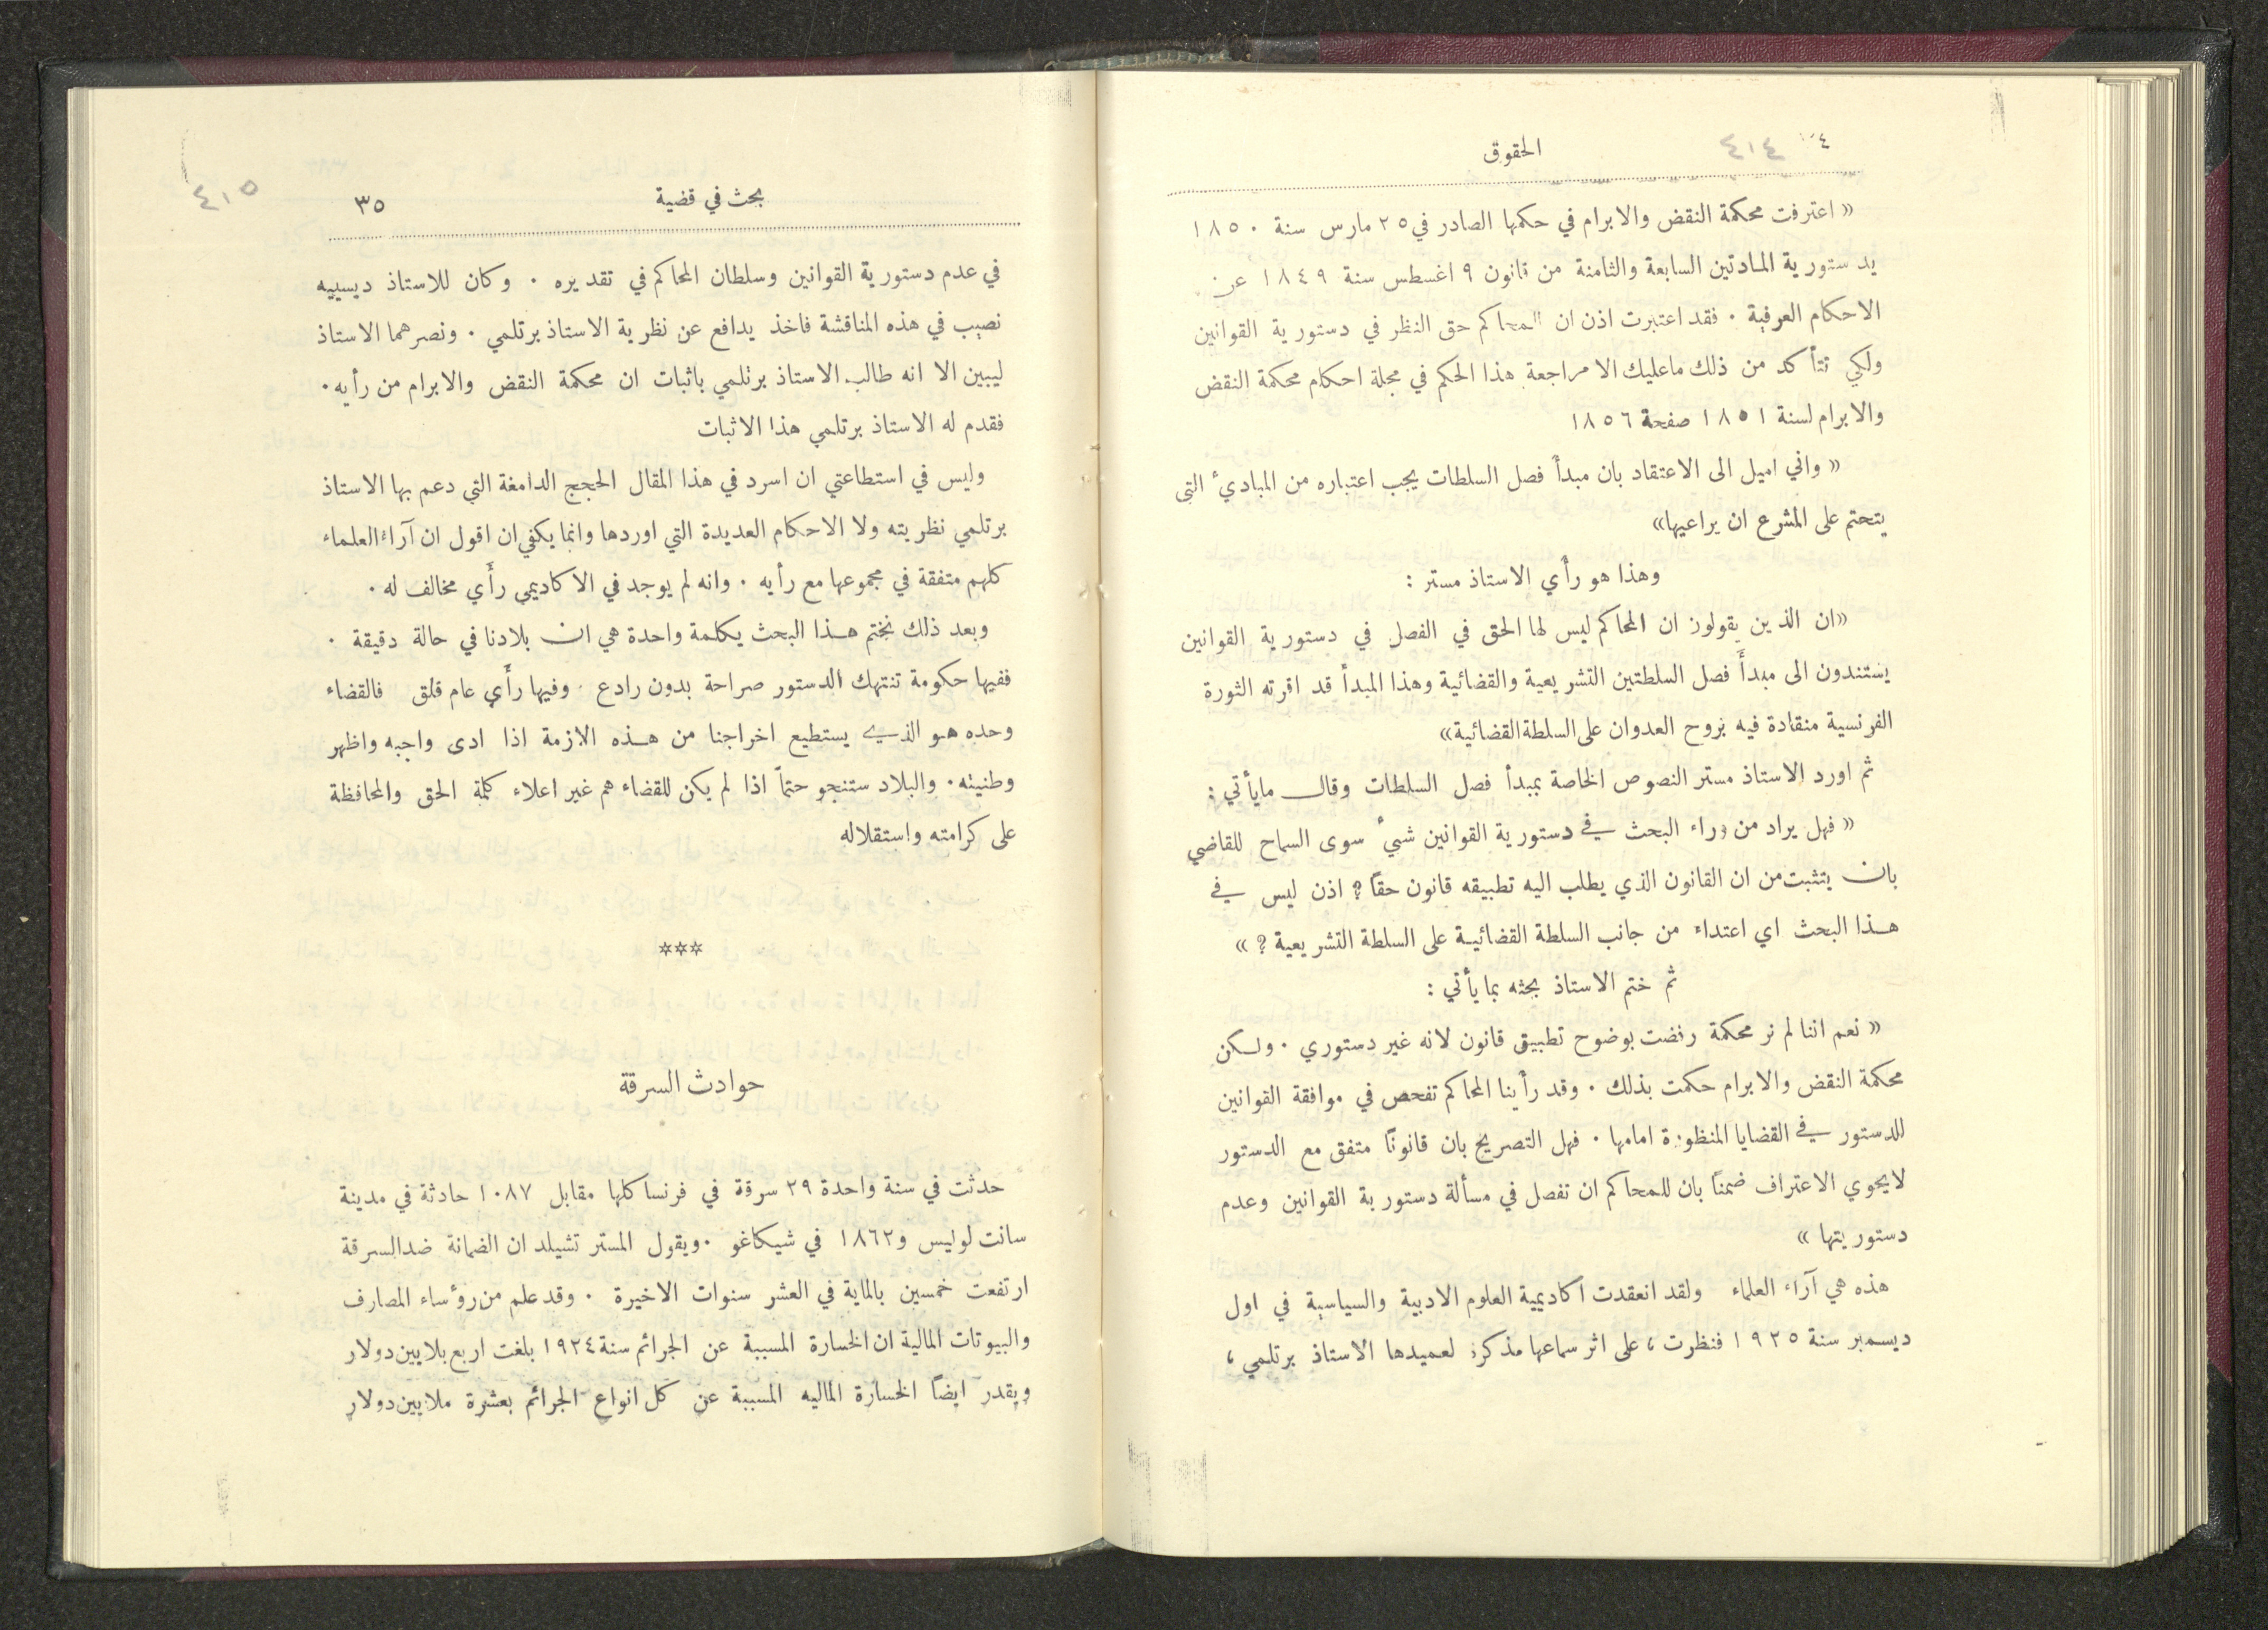 ٤ ٤١٤
الحقوق
« اعترفت محكمة النقض والابرام في حكمها الصادر في ٢٥ مارس سنة ١٨٥٠
بدستورية المادتين السابعة والثامنة من قانون ٩ اغسطس سنة ١٨٤٩ عن
الاحكام العرفية . فقد اعتبرت اذن ان للمحاكم حق النظر في دستورية القوانين
ولكي نتأكد من ذلك ماعليك الا مراجعة هذا الحكم في مجلة احكام محكمة النقض
والابرام لسنة ١٨٥١ صفحة ١٨٥٦
« واني اميل الى الاعتقاد بان مبدأ فصل السلطات يجب اعتباره من المباديء التي
يتحتم على المشرع ان يراعيها»
وهذا هو رأي الاستاذ مستر :
«ان الذين يقولون ان المحاكم ليس لها الحق في الفصل في دستورية القوانين
يستندون الى مبدأ فصل السلطتين التشريعية والقضائية وهذا المبدأ قد اقرته الثورة
الفرنسية منقادة فيه بروح العدوان على السلطة القضائية»
ثم اورد الاستاذ مستر النصوص الخاصة بمبدأ فصل السلطات وقال مايأتي :
« فهل يراد من وراء البحث في دستورية القوانين شيء سوى السماح للقاضي
بان يتثبت من ان القانون الذي يطلب اليه تطبيقه قانون حقاً ? اذن ليس في
هذا البحث اي اعتداء من جانب السلطة القضائية على السلطة التشريعية ? »
ثم ختم الاستاذ بحثه بما يأتي :
« نعم اننا لم نر محكمة رفضت بوضوح تطبيق قانون لانه غير دستوري . ولكن
محكمة النقض والابرام حكمت بذلك . وقد رأينا المحاكم تفحص في موافقة القوانين
للدستور في القضايا المنظورة امامها . فهل التصريح بان قانوناً متفق مع الدستور
لايحوي الاعتراف ضمناً بان للمحاكم ان تفصل في مسألة دستورية القوانين وعدم
دستوريتها »
هذه هي آراء العلماء ولقد انعقدت اكاديمية العلوم الادبية والسياسية في اول
ديسمبر سنة ١٩٢٥ فنظرت ، على اثر سماعها مذكرة لعميدها الاستاذ برتلمي ،
٤١٥
بحث في قضية ٣٥
في عدم دستورية القوانين وسلطان المحاكم في تقديره . وكان للاستاذ ديسييه
نصيب في هذه المناقشة فاخذ يدافع عن نظرية الاستاذ برتلمي . ونصرهما الاستاذ
ليبين الا انه طالب الاستاذ برتلمي باثبات ان محكمة النقض والابرام من رأيه .
فقدم له الاستاذ برتلمي هذا الاثبات
وليس في استطاعتي ان اسرد في هذا المقال الحجج الدامغة التي دعم بها الاستاذ
برتلمي نظريته ولا الاحكام العديدة التي اوردها وانما يكفي ان اقول ان آراء العلماء
كلهم متفقة في مجموعها مع رأيه . وانه لم يوجد في الاكاديمي رأي مخالف له .
وبعد ذلك نختم هذا البحث بكلمة واحدة هي ان بلادنا في حالة دقيقة .
ففيها حكومة تنتهك الدستور صراحة بدون رادع . وفيها رأي عام قلق فالقضاء
وحده هو الذي يستطيع اخراجنا من هذه الازمة اذا ادى واجبه واظهر
وطنيته . والبلاد ستنجو حتماً اذا لم يكن للقضاء هم غير اعلاء كلمة الحق والمحافظة
على كرامته واستقلاله
***
حوادث السرقة
حدثت في سنة واحدة ٢٩ سرقة في فرنسا كلها مقابل ١٠٨٧ حادثة في مدينة
سانت لوليس و١٨٦٢ في شيكاغو . ويقول المستر تشيلد ان الضمانة ضد السرقة
ارتفعت خمسين بالماية في العشر سنوات الاخيرة . وقد علم من رؤساء المصارف
والبيوتات المالية ان الخسارة المسببة عن الجرائم سنة ١٩٢٤ بلغت اربع بلايين دولار
ويقدر ايضاً الخسارة الماليه المسببة عن كل انواع الجرائم بعشرة ملايين دولار